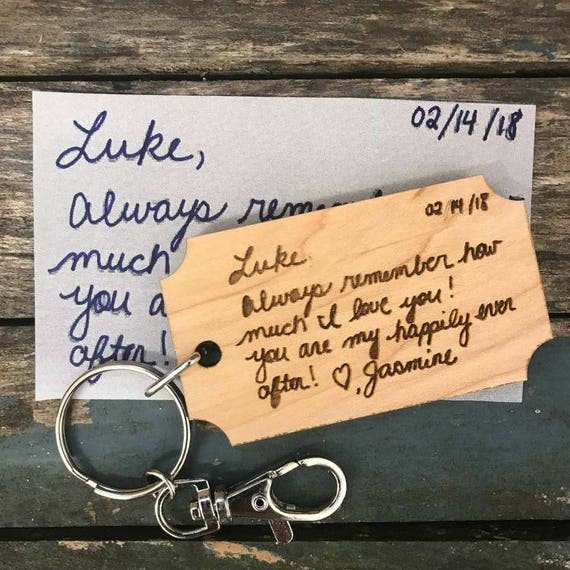 02/14/18
Luke,
always rem
much
you a
after!
02/14/18
Luke,
always remember how
much I love you!
you are my happily ever
after! ♡, Jasmine